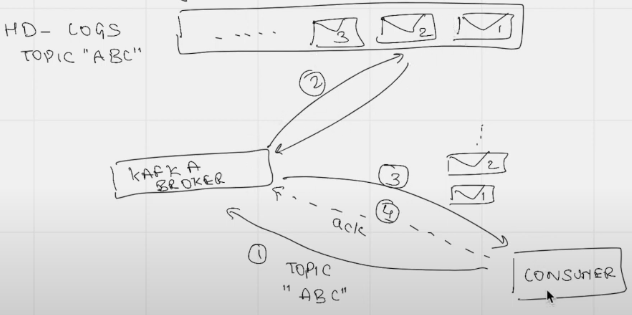 HD- LOGS
TOPIC "ABC"
..... 3 2 1
2
KAFKA
BROKER
3
2
1
4
ack
1
TOPIC
"ABC"
CONSUMER